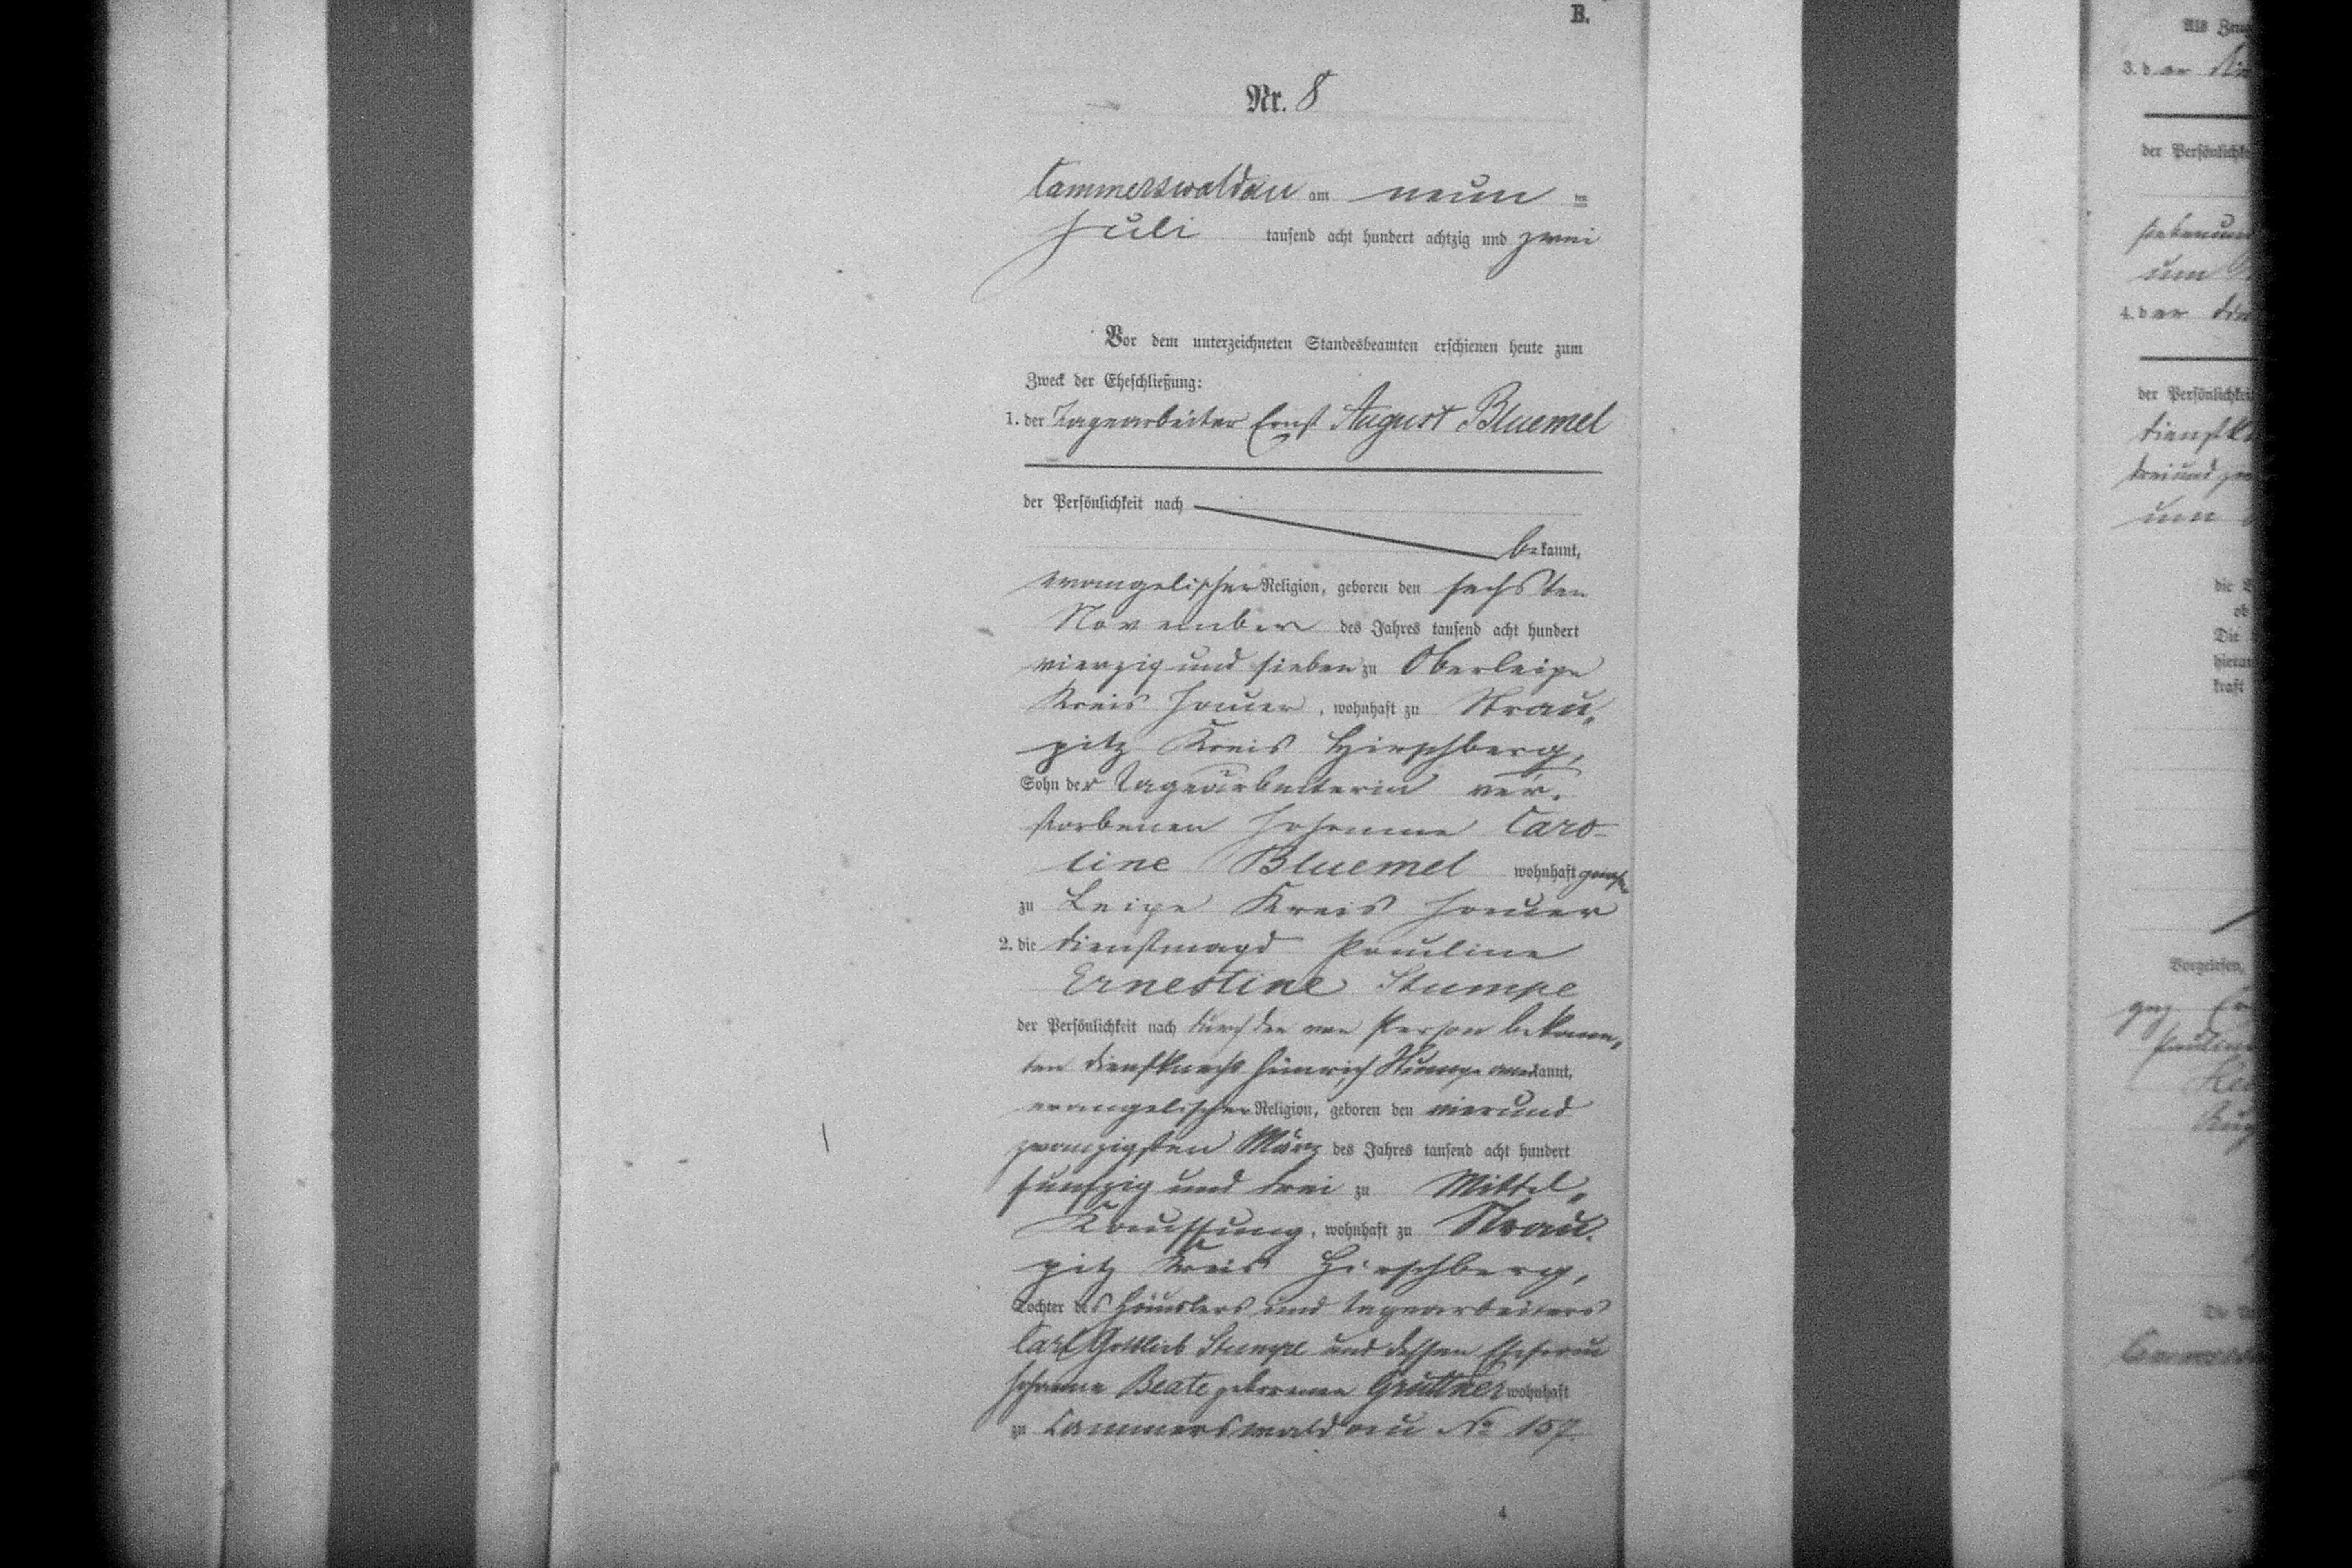 B.
Nr. 8
Cammerswaldau am neun ten
Juli tausend acht hundert achtzig und zwei
Vor dem unterzeichneten Standesbeamten erschienen heute zum
Zweck der Eheschließung:
1. der Tagearbeiter Ernst August Bluemel
der Persönlichkeit nach
bekannt,
evangelischer Religion, geboren den sechsten
November des Jahres tausend acht hundert
vierzig und sieben zu Oberleipe
Kreis Jauer, wohnhaft zu Strau„
pitz Kreis Hirschberg,
Sohn der Tagearbeiterin ver„
storbenen Johanne Caro-
line Bluemel wohnhaft gewesen
zu Leipe Kreis Jauer
2. die Dienstmagd Pauline
Ernestine Stumpe
der Persönlichkeit nach durch den von Person bekann„
ten Dienstknecht Heinrich Stumpe anerkannt,
evangelischer Religion, geboren den vierund
zwanzigsten März des Jahres tausend acht hundert
funfzig und drei zu Mittel„
Kauffung, wohnhaft zu Strau„
pitz Kreis Hirschberg,
Tochter des Häuslers und Tagearbeiters
Carl Gottlieb Stumpe und dessen Ehefrau
Johanne Beate geborenen Grüttner wohnhaft
zu Cammerswaldau No 157.
4
Als Zeug
3. der
der Persönlichke
um
4. der
der Persönlichkeit
Dienstkn
dreiund zwa
um
die
ob
Die
hierau
kraft
Vorgelesen,
gez
Pauline
Aug